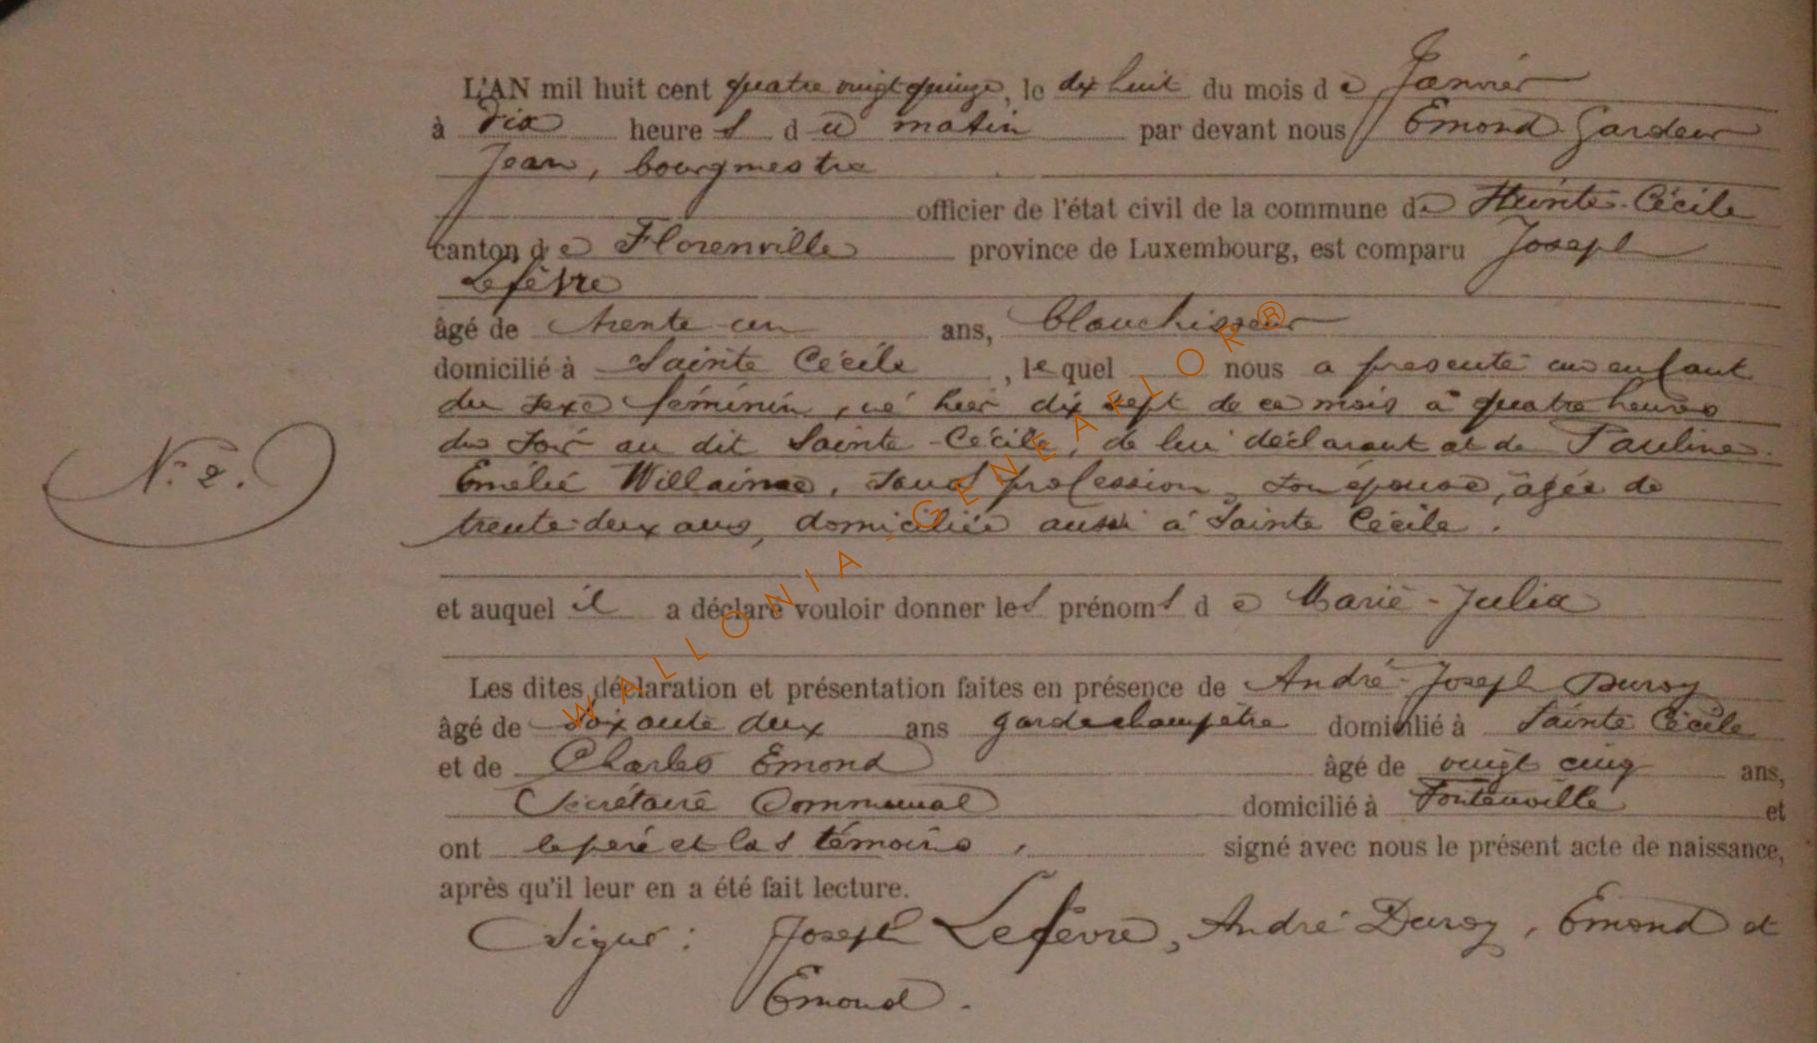 L'AN mil huit cent quatre vingt quinze, le dix huit du mois de Janvier
à dix heures du matin par devant nous Emond Gardeur
Jean, bourgmestre
officier de l'état civil de la commune de Sainte-Cécile
canton de Florenville province de Luxembourg, est comparu Joseph
Lefèvre
âgé de trente-un ans, blanchisseur
domicilié à Sainte Cécile, lequel nous a presenté un enfant
du sexe féminin, né hier dix sept de ce mois à quatre heures
du soir au dit Sainte-Cécile, de lui déclarant et de Pauline
N. 2.
Emélie Willaime, sans profession, son épouse, âgée de
trente-deux ans, domiciliée aussi à Sainte Cécile.
et auquel il a déclaré vouloir donner les prénoms de Marie-Julia
Les dites déclaration et présentation faites en présence de André-Joseph Duroy
âgé de soixante deux ans garde champêtre domicilié à Sainte Cécile
et de Charles Emond âgé de vingt cinq ans,
Secrétaire Communal domicilié à Fontenoille et
ont le père et les témoins, signé avec nous le présent acte de naissance,
après qu'il leur en a été fait lecture.
Signé: Joseph Lefèvre, André Duroy, Emond et
Emond.
WALLONIA-GENEAFLOR®